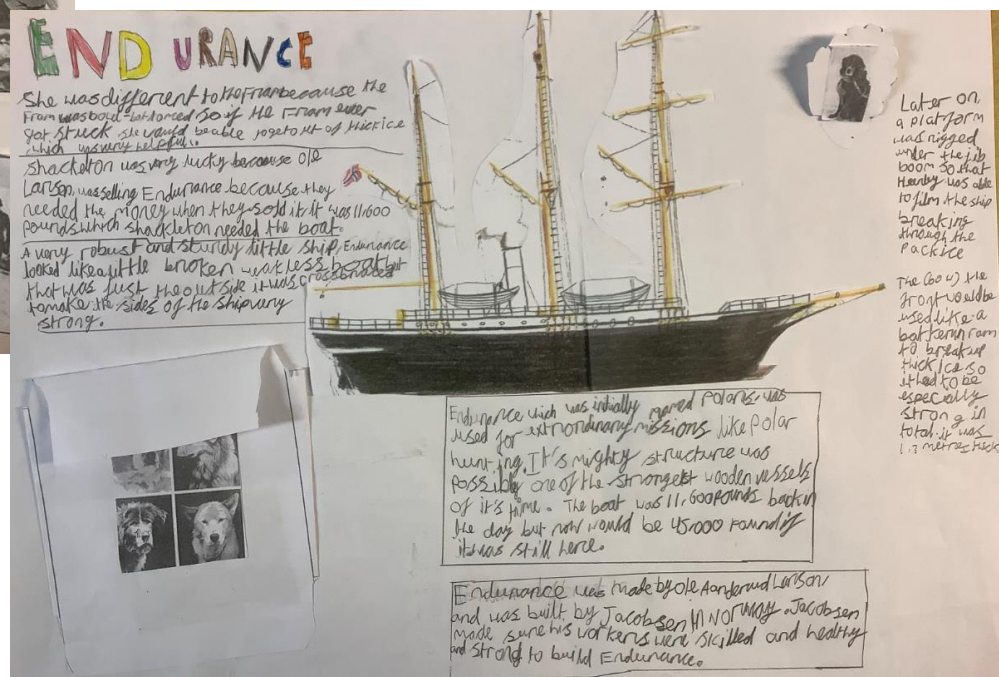 ENDURANCE
She was different to the Fram because the
Fram was bowl-bottomed so if the Fram ever
got stuck she would be able to get out of thick ice
which was very helpful.
Shackelton was very lucky because Ole
Larson, was selling Endurance because they
needed the money when they sold it it was 11,600
pounds which Shackleton needed the boat.
A very robust and sturdy little ship, Endurance
looked like a little broken weak less boat but
that was just the outside it was cross braced
to make the sides of the ship very
strong.
Later on,
a platform
was rigged
under the jib
boom so that
Hurley was able
to film the ship
breaking
through the
Packice
The (bow) the
front would be
used like a
ram
to break up
thick ice so
it had to be
especially
strong in
total it was
1.3 metres thick
Endurance wich was initially named Polaris, was
used for extrordinary missions like Polar
hunting. It's mighty structure was
possibly one of the strongest wooden vessels
of it's time. The boat was 11,600 pounds back in
the day but now would be 45,000 if
it was still here.
Endurance was made by Ole Aanderud Larson,
and was built by Jacobsen in Norway. Jacobsen
made sure his workers were skilled and healthy
and strong to build Endurance.